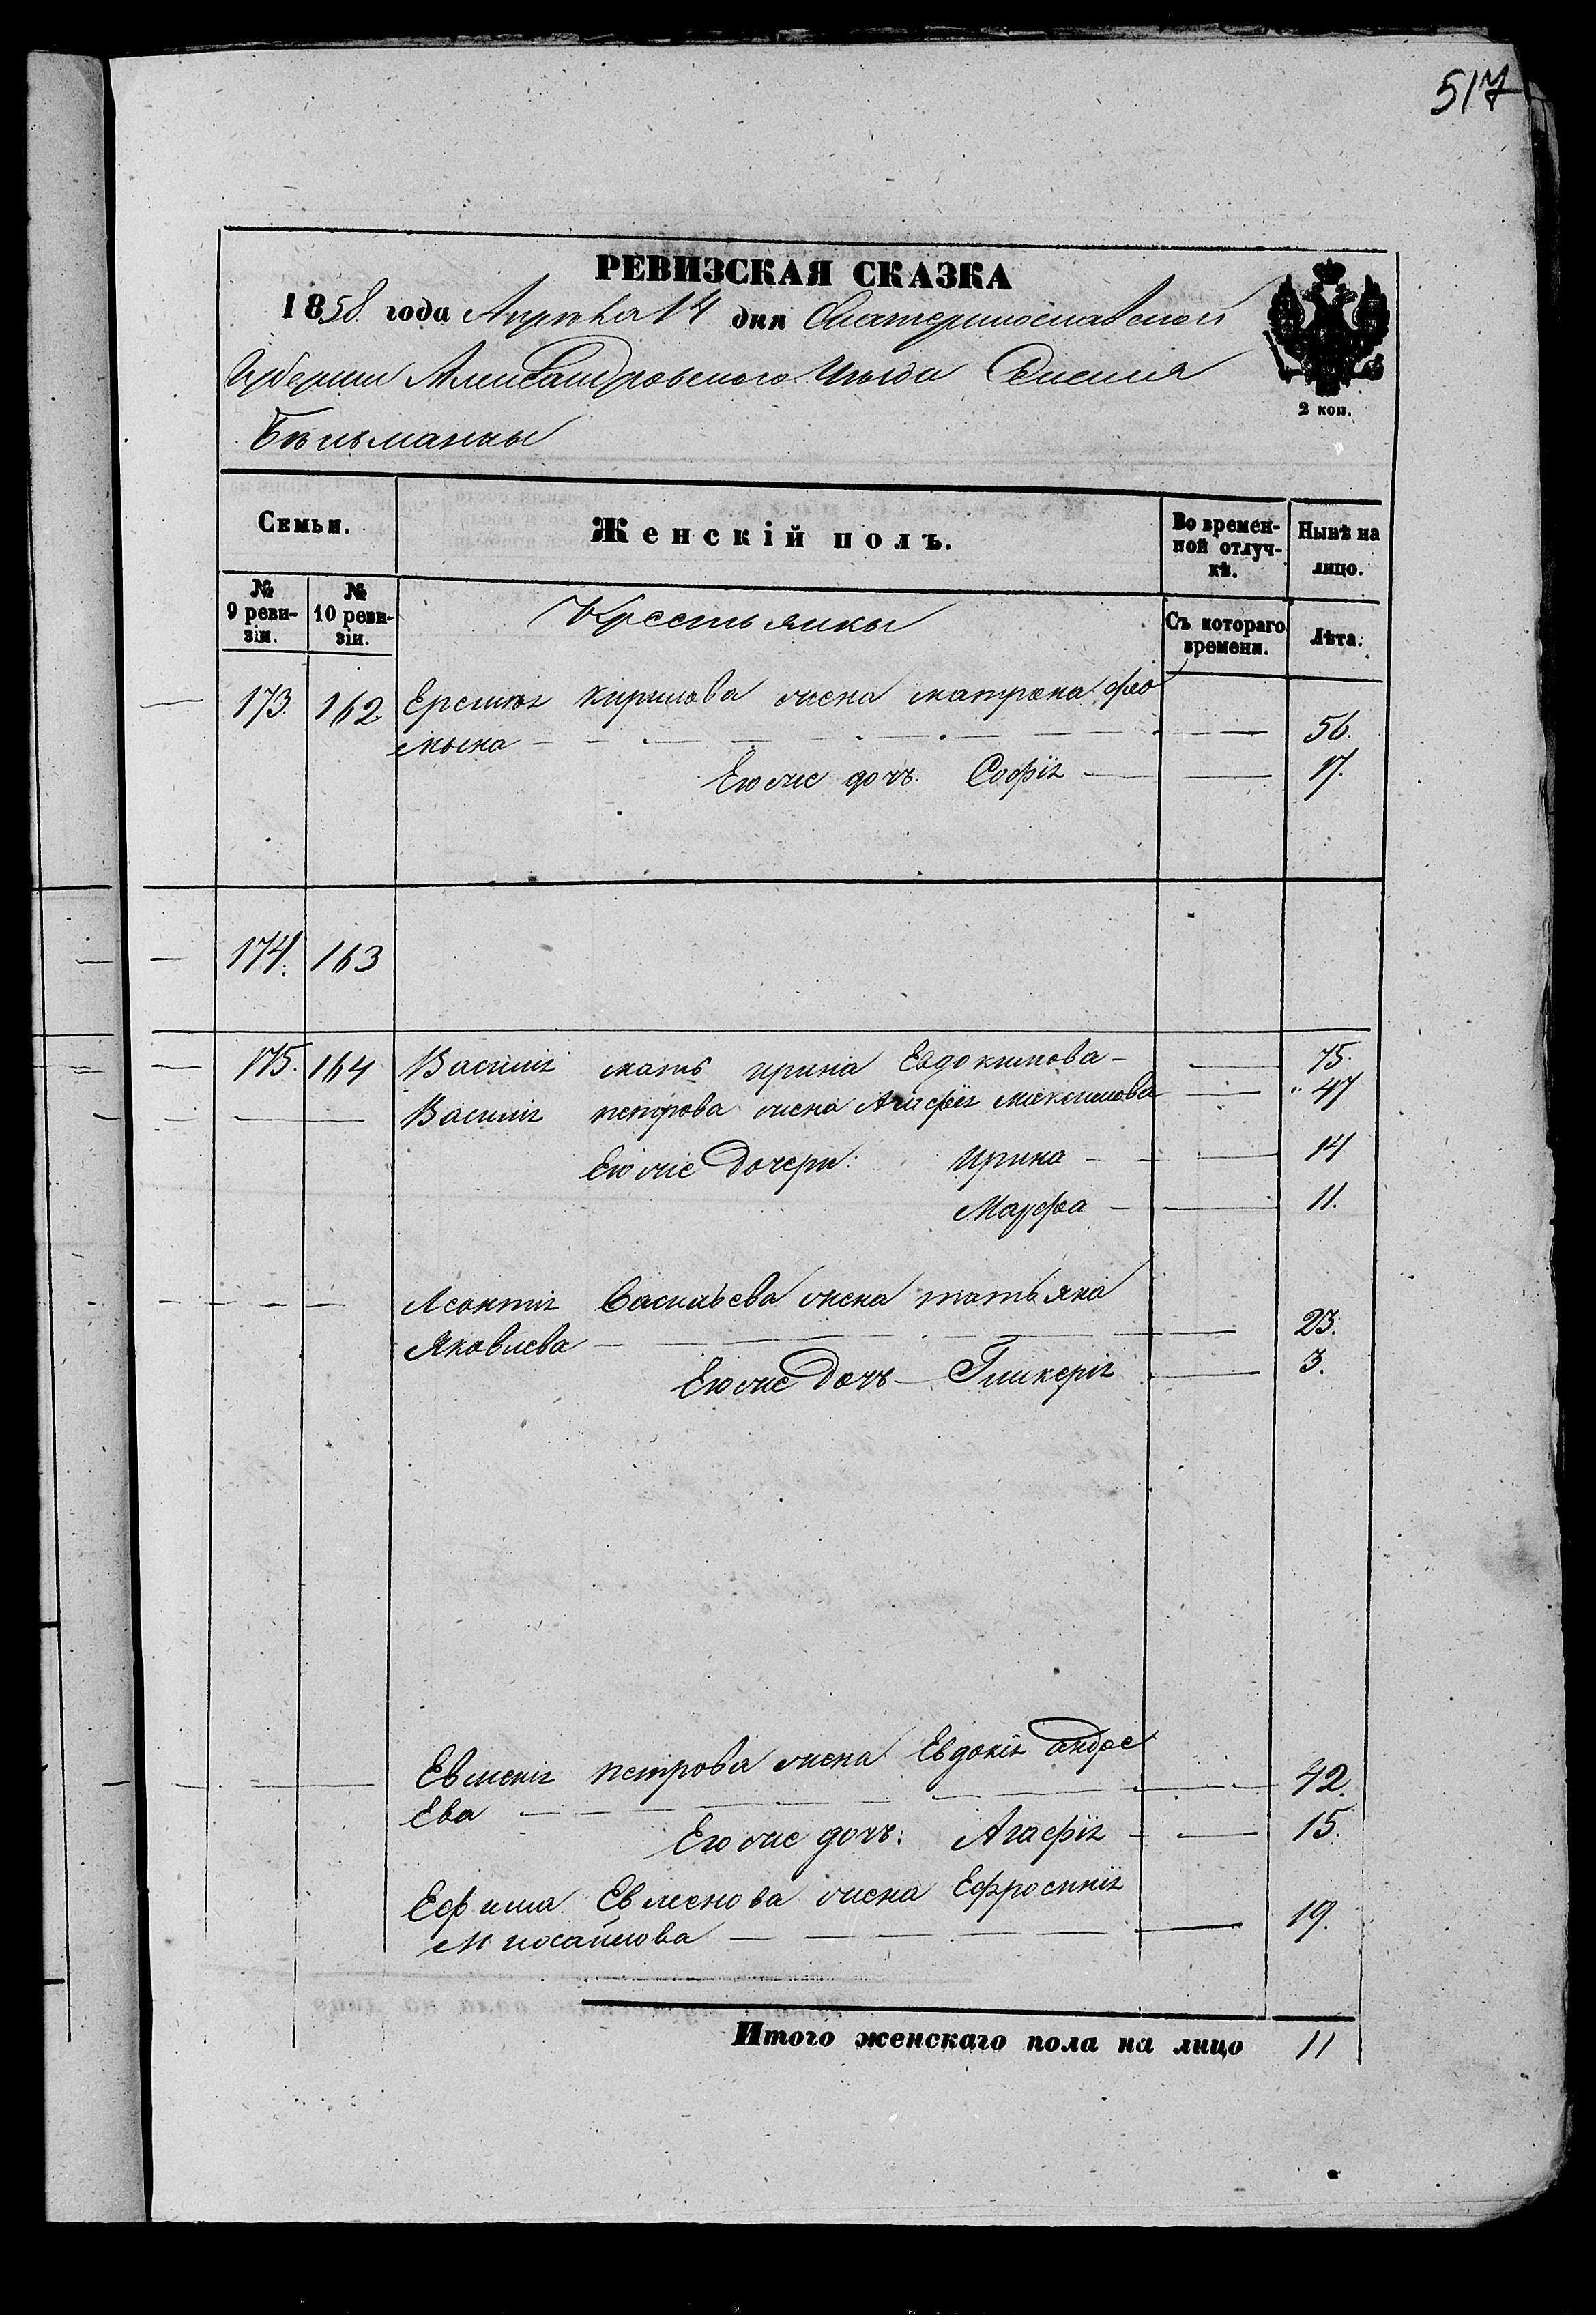 517
РЕВИЗСКАЯ СКАЗКА
1858 года Апреля 14 дня Екатеринославской
Губернии Александровского Уезда Селения
Бѣльманки
2 коп.
Семьи.
Женскій полъ.
Во времен-
ной отлуч-
кѣ.
Нынѣ на
лицо.
№
9 реви-
зіи.
№
10 реви-
зіи.
Крестьянки
Съ котораго
времени.
Лѣта.
173. 162. Еремія Кирилова жена матрена фо
мына 56.
Его же дочь. Софія 17.
174. 163
175. 164 Василія мать ирина Евдокимова 75.
Василія петрова жена Агафія Максимова 47
Его же Дочери: Ирина 14
Марфа 11.
Леонтія Васильева жена татьяна
Яковлева 23.
Его же Дочь Гликерія 3.
Евменія петрова жена Евдокія андре
Ева 42.
Его же дочь: Агафія 15.
Ефима Евменова жена Ефросинія
Михайлова 19.
Итого женскаго пола на лицо 11